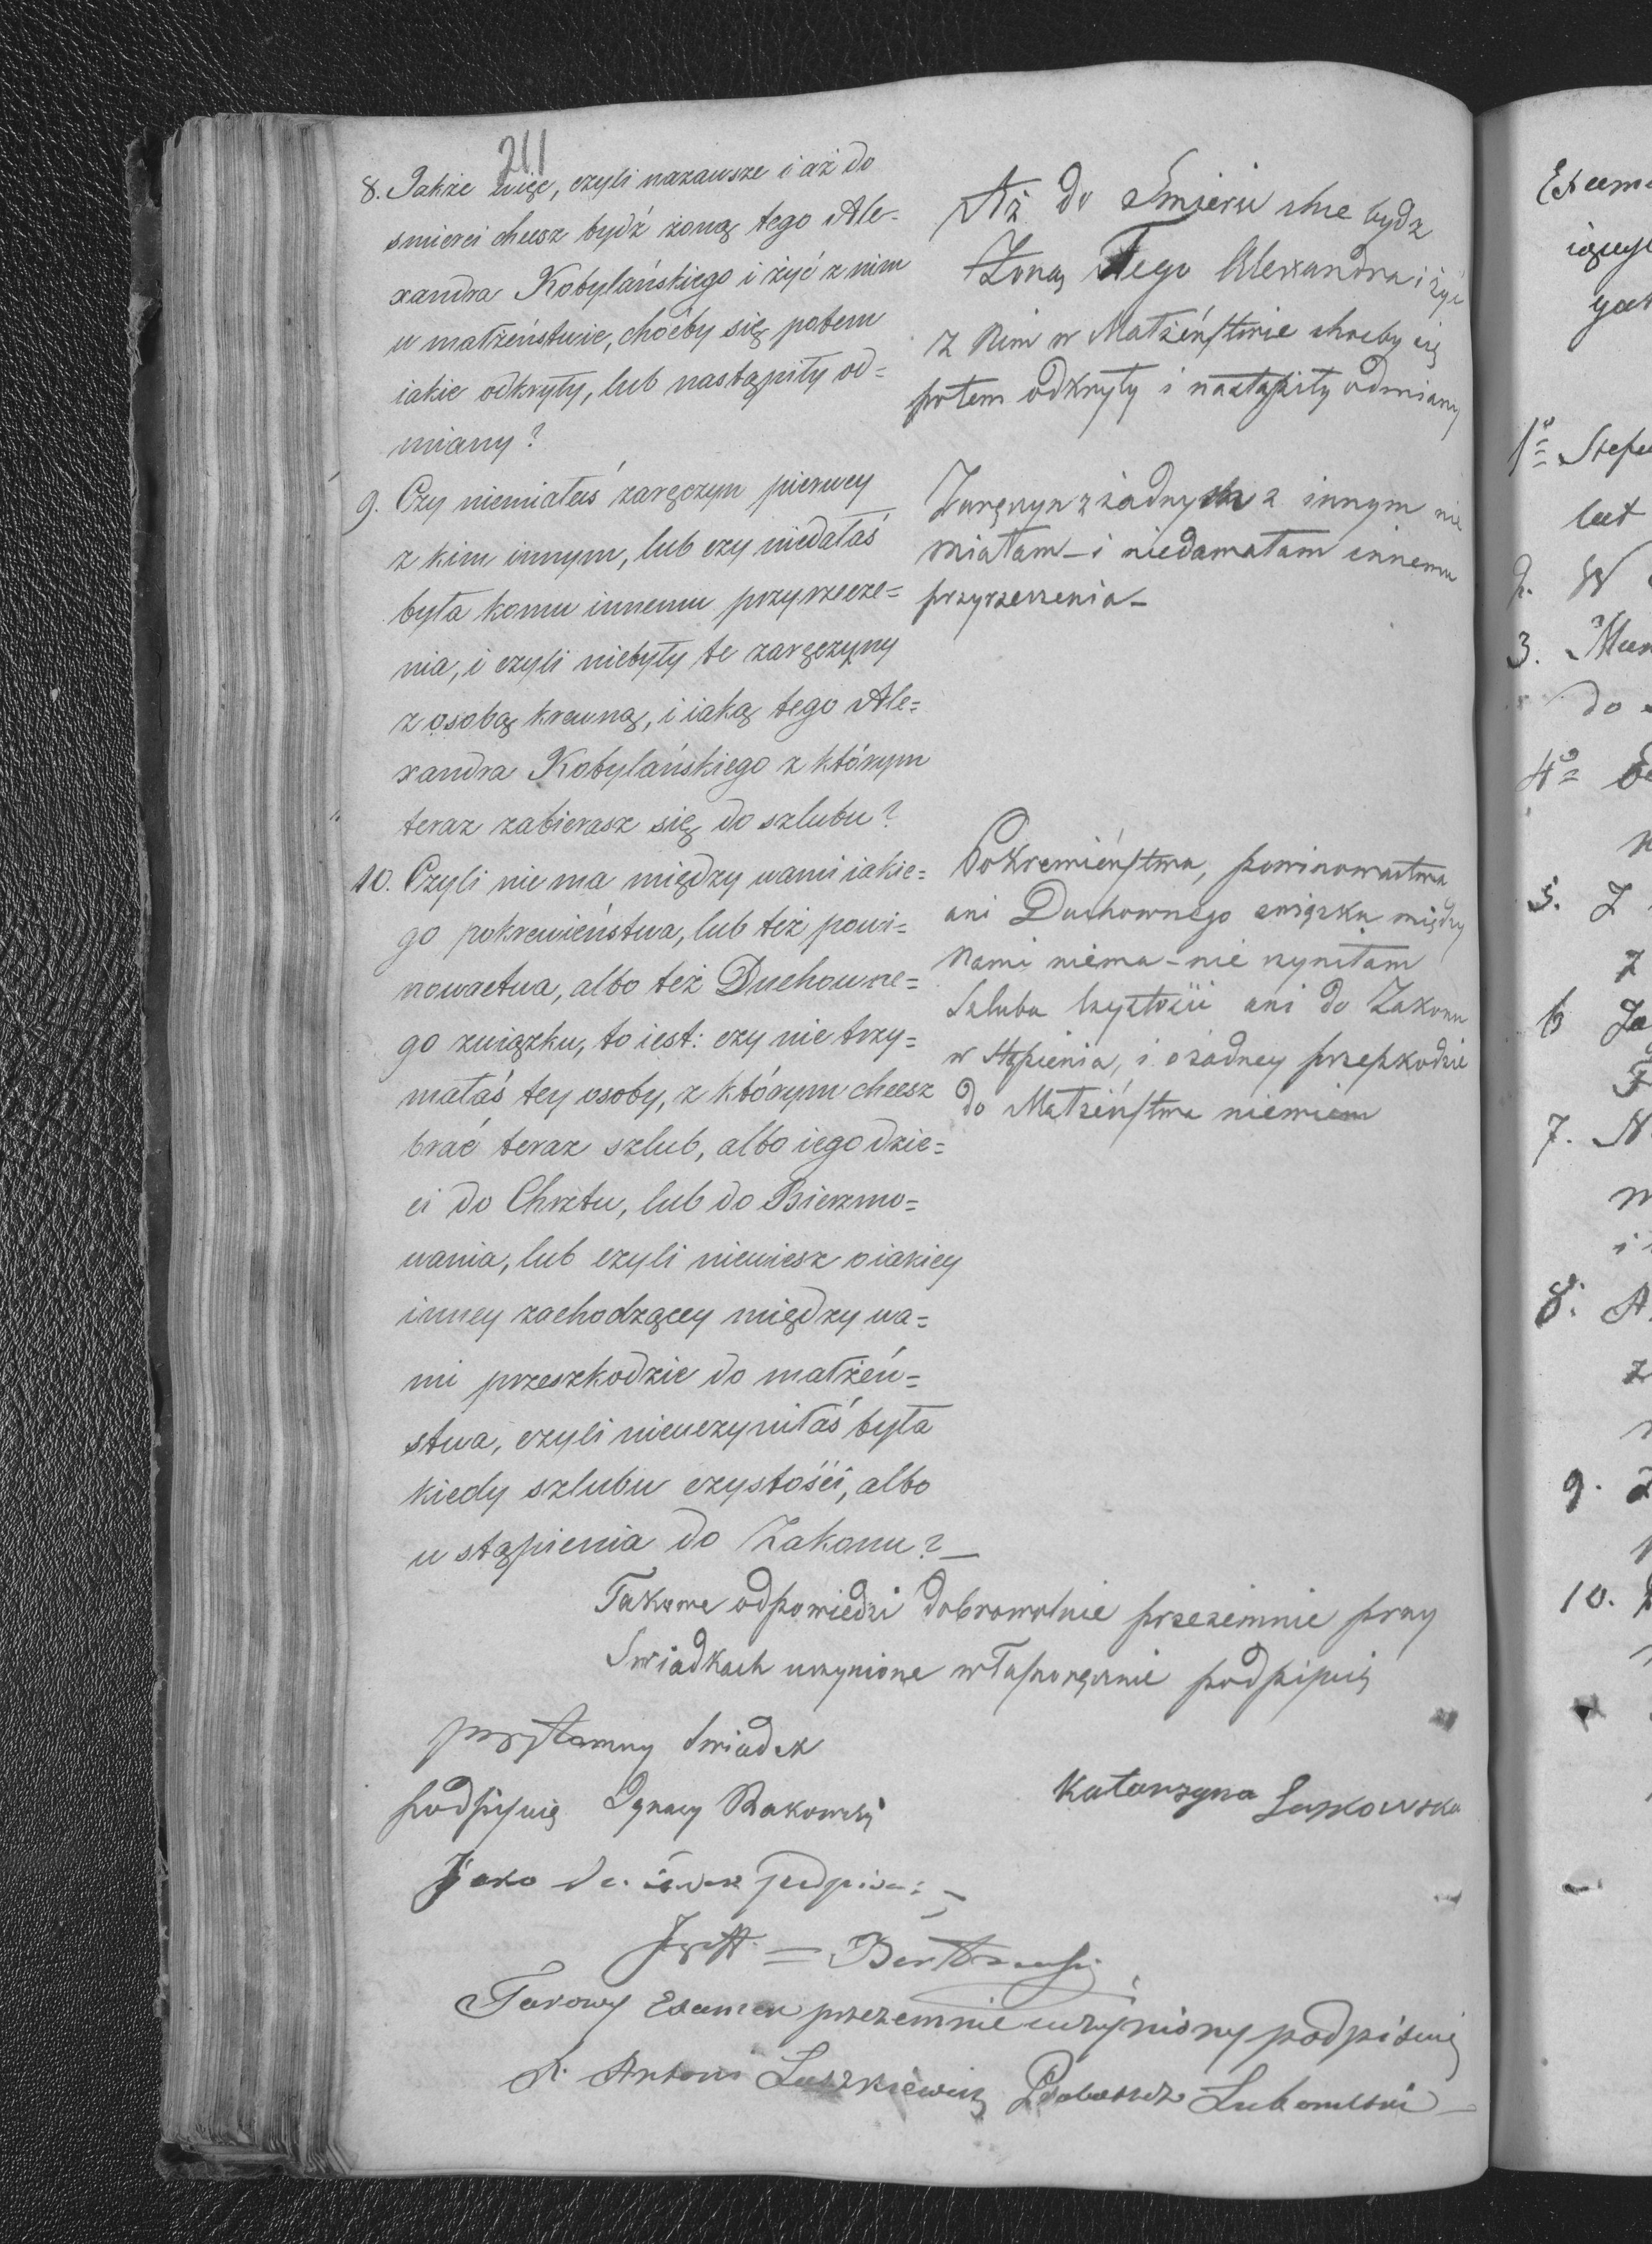 211
8. Jakże więc, czyli nazawsze i aż do
smierci chcesz bydź żoną tego Ale=
xandra Kobylańskiego i żyć z nim
w małżeństwie, choćby się potem
iakie odkryły, lub nastąpiły od=
miany?
Aż do Smierci chce bydz
Żoną Tego Alexandra i żyć
z Nim w Małżeństwie choćby się
potem odkryły i nastąpiły odmiany
9. Czy niemiałaś zaręczyn pierwey
z kim innym, lub czy niedałaś
była komu innemu przyrzecze=
nia, i czyli niebyły te zaręczyny
z osobą krewną, i iaką tego Ale=
xandra Kobylańskiego z którym
teraz zabierasz się do szlubu?
Zaręczyn z żadnych z innym nie
miałam – i niedawałam innemu
przyrzeczenia –
10. Czyli nie ma między wami iakie=
go pokrewieństwa, lub też powi=
nowactwa, albo też Duchowne=
go związku, to iest: czy nie trzy=
małaś tey osoby, z którym chcesz
brać teraz szlub, albo iego dzie=
ci do Chrztu, lub do Bierzmo=
wania, lub czyli niewiesz o iakiey
inney zachodzącey między wa=
mi przeszkodzie do małżeń=
stwa, czyli nieuczyniłaś była
kiedy szlubu czystości, albo
wstąpienia do Zakonu? –
Pokrewieństwa, powinowactwa
ani Duchownego związku między
Nami niema – nie czyniłam
Szlubu czystości ani do Zakonu
w stąpienia, i o żadney przeszkodzie
do Małżeństwa niewiem
Takowe odpowiedzi dobrowolnie przezemnie przy
Swiadkach uczynione własnoręcznie podpisuię
przytomny Swiadek
podpisuię Ignacy Rakowski
Katarzyna
Jako
Takowy Examen przezemnie uczyniony podpisuię
X. Antoni Luszkiewicz Proboszcz Lubomlski –
Exam
1º Stefa
lat
2. W
3.
do
4º
5. Z
z
6
7. N
8. A
z
9. Z
10.